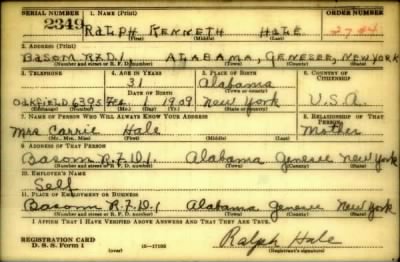 SERIAL NUMBER 1. NAME (Print) ORDER NUMBER
2349 RALPH KENNETH HALE
(First) (Middle) (Last)
2. ADDRESS (Print)
BASOM R.F.D.1. ALABAMA, GENESEE, NEW YORK
(Number and street or R. F. D. number) (Town) (County) (State)
3. TELEPHONE 4. AGE IN YEARS 5. PLACE OF BIRTH 6. COUNTRY OF CITIZENSHIP
31 Alabama
(Town or county)
DATE OF BIRTH
OAKFIELD Feb 1909 New York U.S.A.
(Exchange) (Number) (Mo.) (Day) (Yr.) (State or country)
7. NAME OF PERSON WHO WILL ALWAYS KNOW YOUR ADDRESS 8. RELATIONSHIP OF THAT PERSON
Mrs Carrie Hale Mother
(Mr., Mrs., Miss) (First) (Middle) (Last)
9. ADDRESS OF THAT PERSON
Basom R.F.D.1. Alabama Genesee New York
(Number and street or R. F. D. number) (Town) (County) (State)
10. EMPLOYER'S NAME
Self
11. PLACE OF EMPLOYMENT OR BUSINESS
Basom R.F.D.1. Alabama Genesee New York
(Number and street or R. F. D. number) (Town) (County) (State)
I AFFIRM THAT I HAVE VERIFIED ABOVE ANSWERS AND THAT THEY ARE TRUE.
REGISTRATION CARD
D. S. S. Form 1 (over) 16—17105 Ralph Hale
(Registrant's signature)